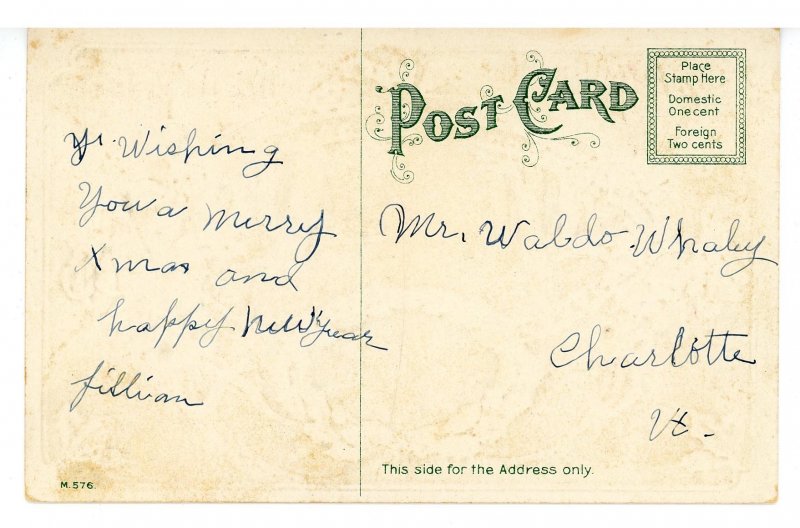 Wishing
You a merry
Xmas and
happy New Year
Lillian
POST CARD
Place
Stamp Here
Domestic
One cent
Foreign
Two cents
Mr. Waldo Whaley
Charlotte
Vt.
This side for the Address only.
M. 576.